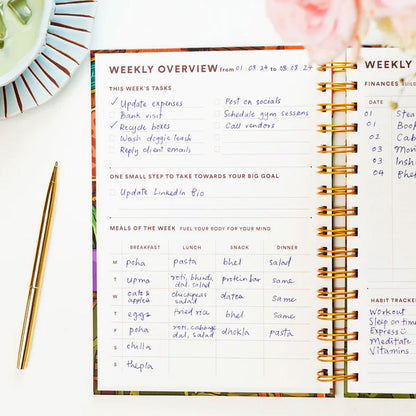 WEEKLY OVERVIEW from 01 08 24 to 08 08 24
THIS WEEK'S TASKS
✓ Update expenses
Bank visit
✓ Recycle boxes
Wash diggie leash
Reply client emails
Post on socials
Schedule gym sessions
Call vendors
ONE SMALL STEP TO TAKE TOWARDS YOUR BIG GOAL
Update LinkedIn Bio
MEALS OF THE WEEK FUEL YOUR BODY FOR YOUR MIND
BREAKFAST LUNCH SNACK DINNER
M poha pasta bhel salad
T upma roti, bhindi, dal, salad protein bar same
W oats & apples chickpeas salad dates same
T eggs fried rice bhel same
F poha roti, cabbage dal, salad dhokla pasta
S chilla
S thepla
FINANCES
DATE
01
01
02
03
03
04
HABIT TRACKER
Workout
Sleep on time
Express
Meditate
Vitamins